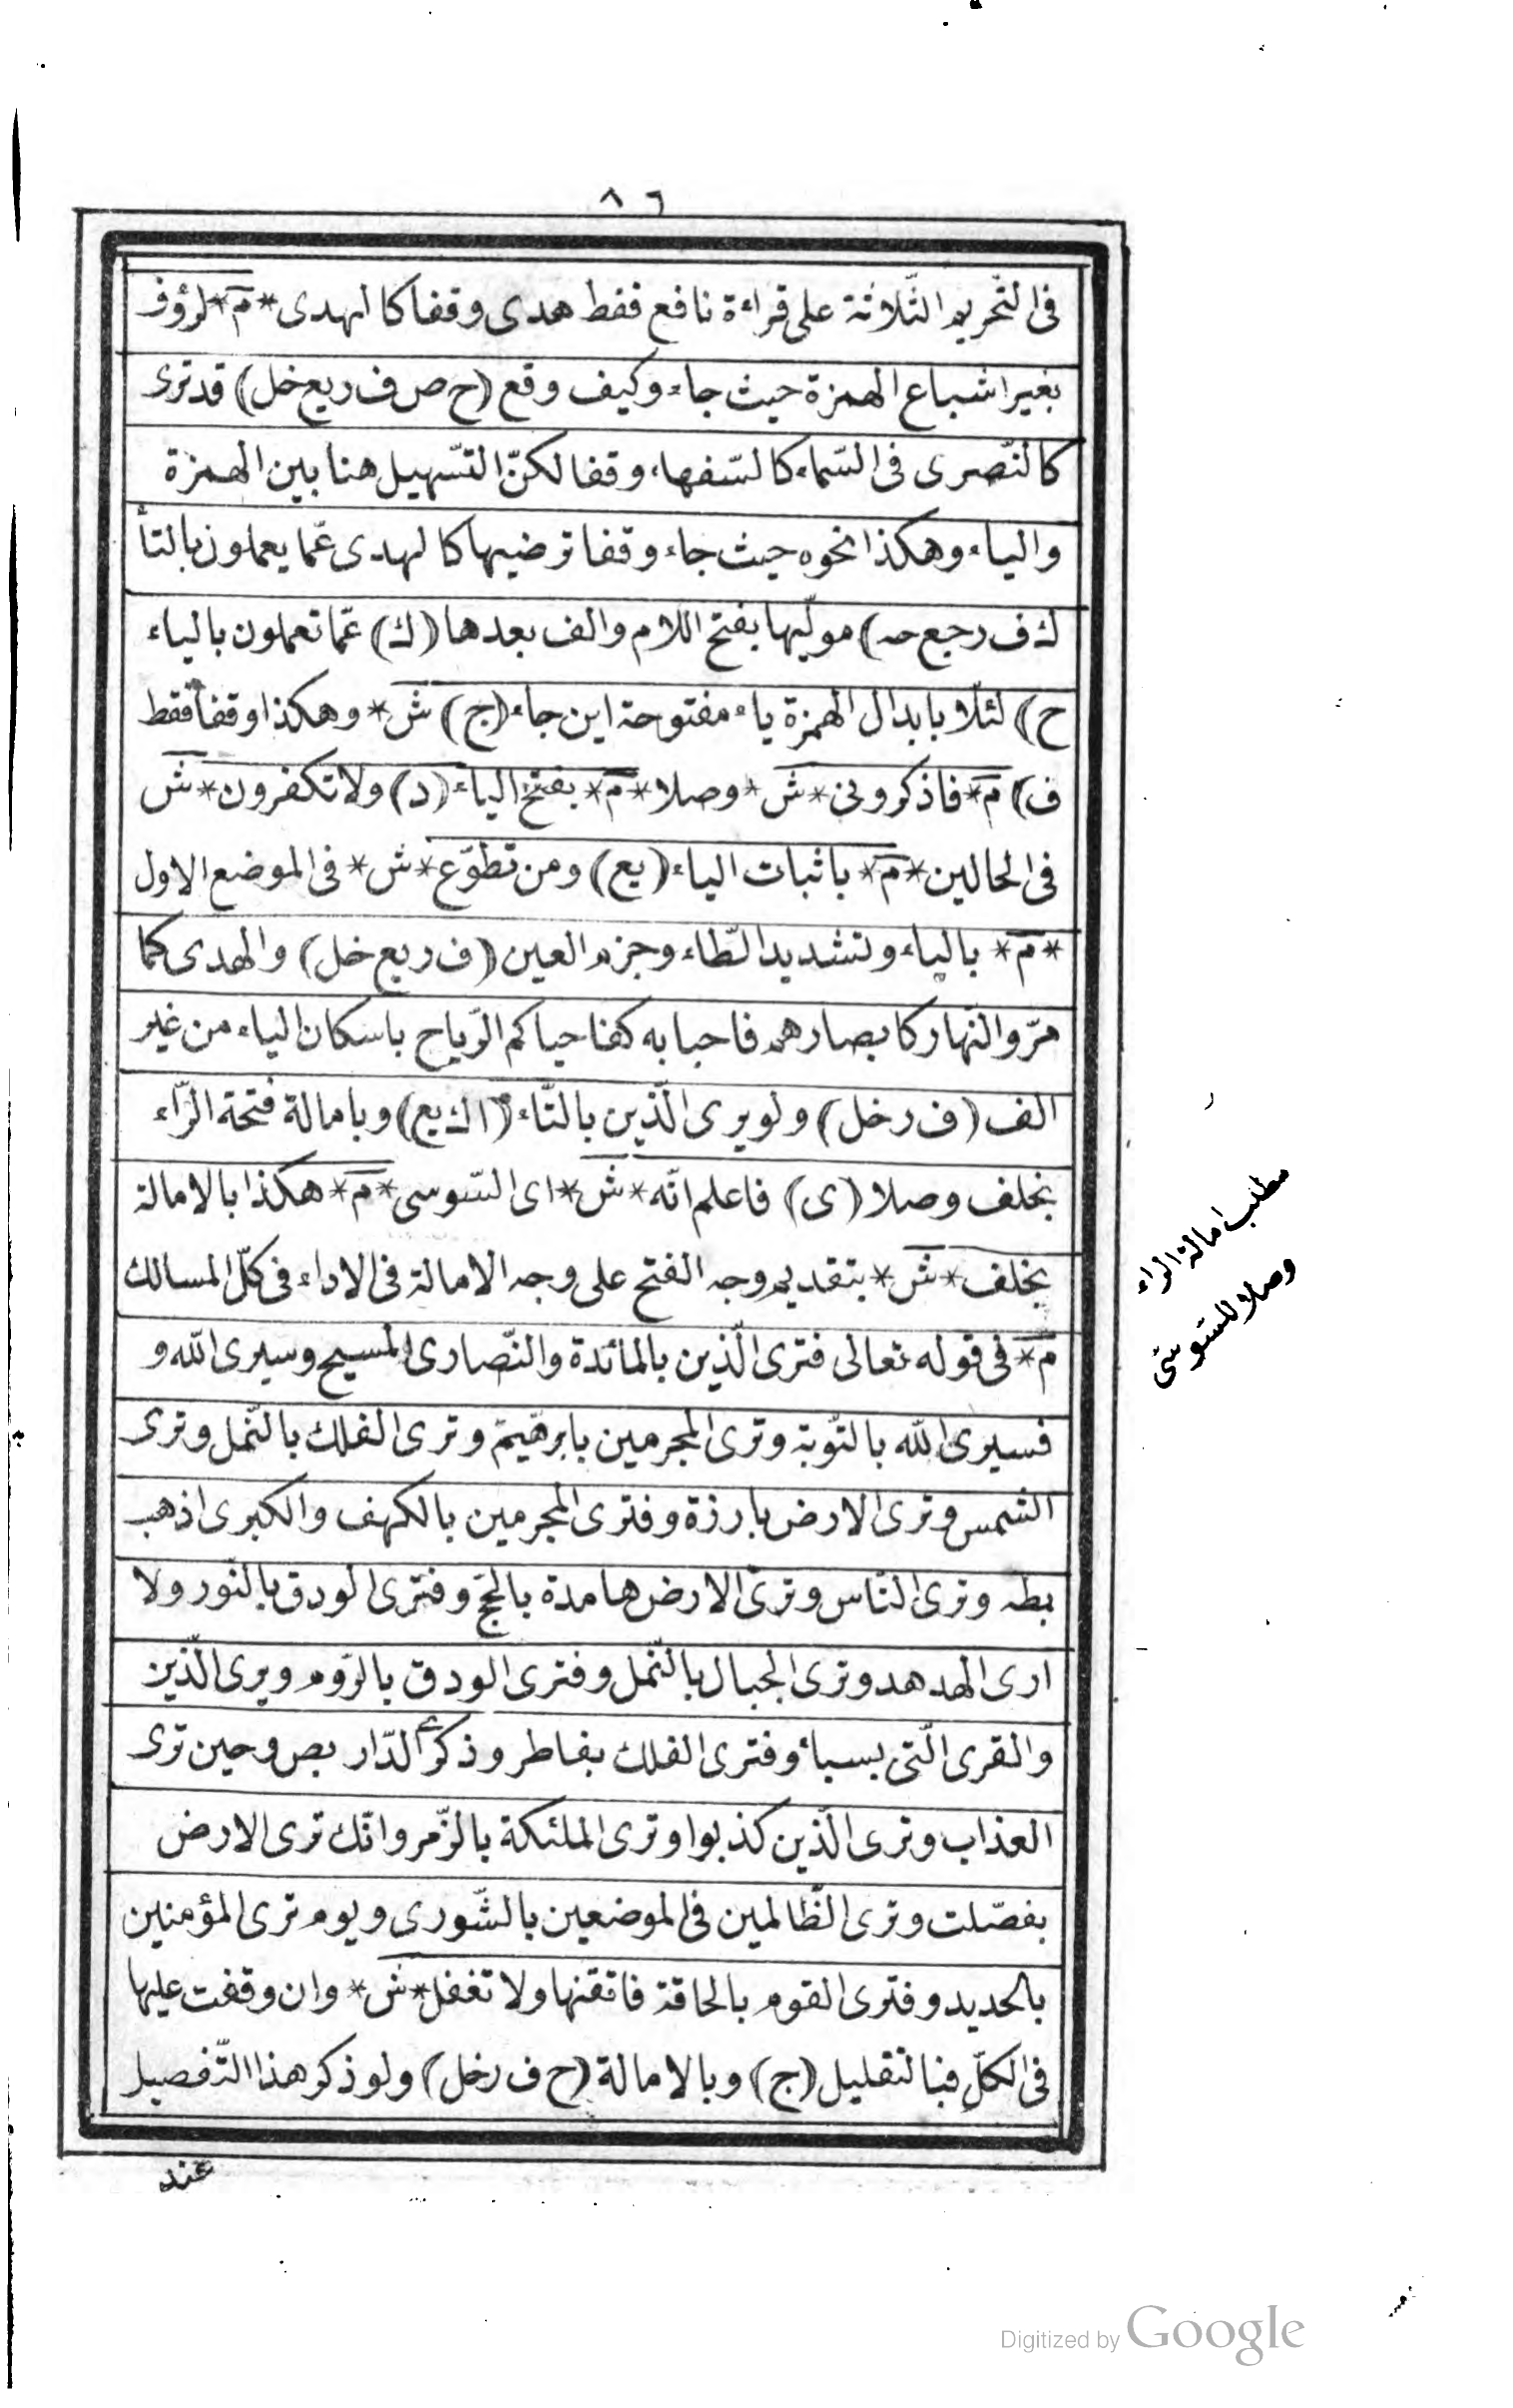 ٨٦
فى التّحريم الثّلاثة على قراءة نافع فقط هدى وقفا كالهدى * م * لرؤف
بغير اشباع الهمزة حيث جاء وكيف وقع (ح ص ف ر يع خل) قد ترى
كالنّصرى فى السّماء كالسّفهاء وقفا لكنّ التّسهيل هنا بين الهمزة
والياء وهكذا نحوه حيث جاء وقفا ترضيها كالهدى عمّا يعملون بالتأ
ك ف ر جع حه) مولّيها بفتح اللام والف بعدها (ك) عمّا تعملون بالياء
ح) لئلّا بابدال الهمزة ياء مفتوحة اين جاء (ج) ش * وهكذا وقفا فقط
ف) م * فاذكرونى * ش * وصلا * م * بفتح الياء (د) ولا تكفرون * ش
فى الحالين * م * باثبات الياء (يع) ومن تطوّع * ش * فى الموضع الاول
* م * بالياء وتشديد الطّاء وجزم العين (ف ر يع خل) والهدى كما
مرّ والنّهار كابصارهم فاحيا به كفاحياكم الرّياح باسكان الياء من غير
الف (ف ر خل) ولو يرى الّذين بالتّاء (ا ك يع) وبامالة فتحة الرّاء
بخلف وصلا (ى) فاعلم انّه * ش * اى السّوسى * م * هكذا بالامالة
بخلف * ش * بتقديم وجه الفتح على وجه الامالة فى الاداء فى كلّ المسالك
م * فى قوله تعالى فترى الّذين بالمائدة والنّصارى المسيح وسيرى الله و
فسيرى الله بالتّوبة وترى المجرمين بابرهيم وترى الفلك بالنّمل وترى
الشّمس وترى الارض بارزة وفترى المجرمين بالكهف والكبرى اذهب
بطه وترى النّاس وترى الارض هامدة بالحجّ وفترى الودق بالنّور ولا
ارى الهدهد وترى الجبال بالنّمل وفترى الودق بالرّوم ويرى الّذين
والقرى الّتى بسبأ وفترى الفلك بفاطر وذكرى الدّار بص وحين ترى
العذاب وترى الّذين كذبوا وترى الملئكة بالزّمر وانّك ترى الارض
بفصّلت وترى الظّالمين فى الموضعين بالشّورى ويوم ترى المؤمنين
بالحديد وفترى القوم بالحاقة فاتقنها ولا تغفل * ش * وان وقفت عليها
فى الكلّ فبالتقليل (ج) وبالامالة (ح ف ر خل) ولو ذكر هذا التّفصيل
عند
مطلب امالة الراء
وصلا للسّوسىّ
Digitized by Google